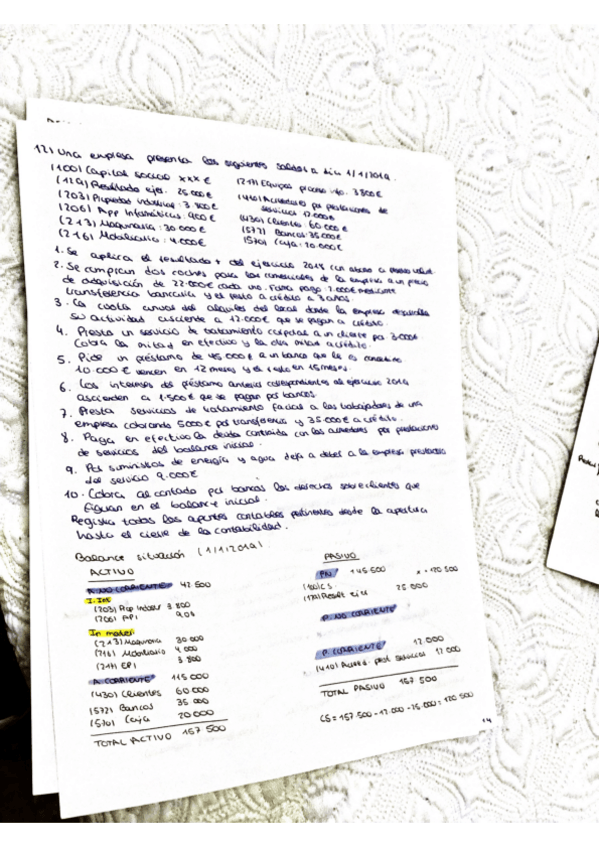 12) Una empresa presenta los siguientes saldos a día 1/1/2019.
(100) Capital social xxx € (217) Equipos proceso info. 3 800€
(129) Resultado ejer. 25 000€ (410) Acreedores por prestaciones de
(203) Propiedad industrial: 3.800€ servicios 12.000€
(206) App Informáticas: 900€ (430) Clientes: 60 000€
(213) Maquinaria: 30 000€ (572) Bancos: 35 000€
(216) Mobiliario: 4.000€ (570) Caja: 20.000€
1. Se aplica el resultado + del ejercicio 2018 con abono a reserva
2. Se compran dos coches para los comerciales de la empresa a un precio
de adquisición de 22.000€ cada uno. Forma pago: 2.000€ mediante
transferencia bancaria y el resto a crédito a 3 años.
3. La cuota anual del alquiler del local donde la empresa desarrolla
su actividad asciende a 12.000€ que se pagan a crédito.
4. Presta un servicio de tratamiento corporal a un cliente por 3.000€
Cobra la mitad en efectivo y la otra mitad a crédito.
5. Pide un préstamo de 45 000€ a un banco que le es concedido
10.000€ vencen en 12 meses y el resto en 15 meses.
6. Los intereses del préstamo anterior correspondientes al ejercicio 2019
ascienden a 1.500€ que se pagan por bancos.
7. Presta servicios de tratamiento facial a los trabajadores de una
empresa cobrando 5000€ por transferencia y 35.000€ a crédito.
8. Paga en efectivo la deuda contraída con los acreedores por prestaciones
de servicios del balance inicial.
9. Por suministros de energía y agua deja a deber a la empresa prestadora
del servicio 9.000€
10. Cobra al contado por bancos los derechos sobre clientes que
figuran en el balance inicial.
Registra todos los apuntes contables pertinentes desde la apertura
hasta el cierre de la contabilidad.
Balance situación (1/1/2019)
ACTIVO PASIVO
A. NO CORRIENTE 42 500 PN 145 500 x = 120 500
I. Int (100) C.S.
(203) Prop Indust 3 800 (129) Result eje 25 000
(206) API 900
In mater: P. NO CORRIENTE
(213) Maquinaria 30 000
(216) Mobiliario 4 000
(217) EPI 3 800 P. CORRIENTE 12.000
A. CORRIENTE 115 000 (410) Acree. prest servicios 12 000
(430) Clientes 60 000
(572) Bancos 35 000 TOTAL PASIVO 157 500
(570) Caja 20 000
TOTAL ACTIVO 157 500 CS = 157 500 - 12.000 - 25.000 = 120 500